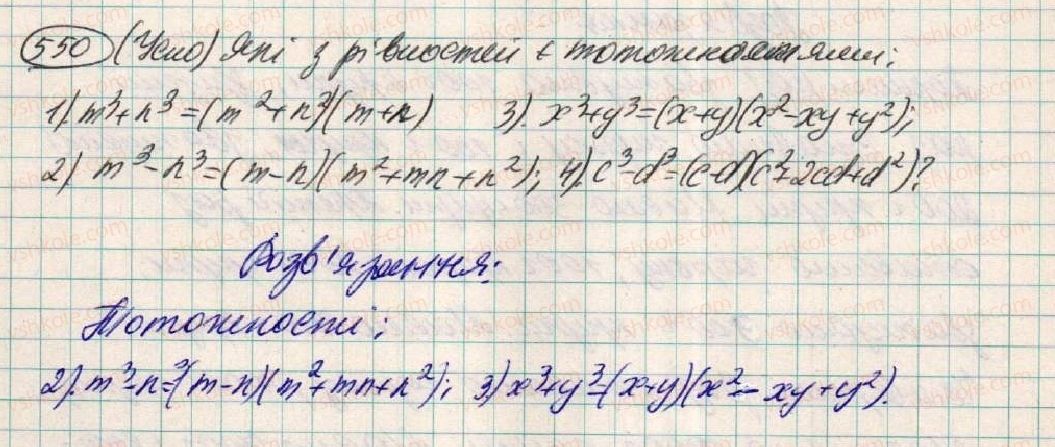 550 (Усно) Які з рівностей є тотожностями:
1) m³+n³=(m²+n²)(m+n) 3). x³+y³=(x+y)(x²-xy+y²);
2) m³-n³=(m-n)(m²+mn+n²); 4). c³-d³=(c-d)(c²+2cd+d²)?
Розв'язання:
Тотожності:
2). m³-n³=(m-n)(m²+mn+n²); 3) x³+y³=(x+y)(x²-xy+y²).